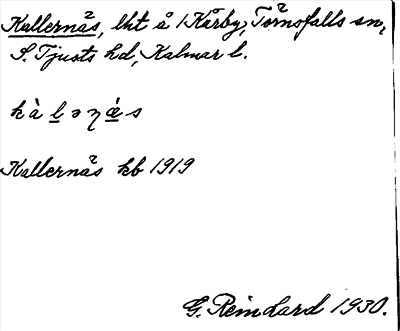 Kallernäs, lht å 1 Kårby, Törnsfalls sn,
S. Tjusts hd, Kalmar l.
k à l ə ɳ ǽ s
Kallernäs kb 1919
G. Reinhard 1930.